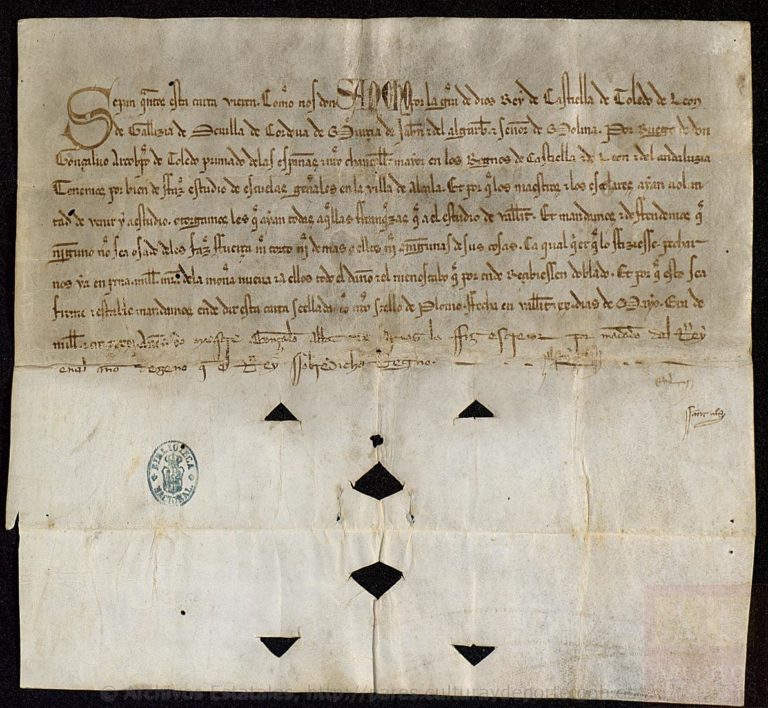 Sepan quantos esta carta vieren. Como nos don SANCHO por la gra de dios Rey de Castiella de Toledo de Leon
de Gallizia de Seuilla de Cordoua de Murcia de Jahen τ del algarbe τ Señor de Molina. Por Ruego de don
Gonçaluo Arcobpo de Toledo primado delas espannas τ nro chanceller mayor en los Regnos de Castiella τ de Leon τ del andaluzia
Tenemos por bien de ffaz estudio de escuelas generales en la villa de alcala. Et por q los maestros τ los escolares ayan uolun
tad de venir y a estudio. otorgamos les q ayan todas aqllas ffranqzas q a el estudio de vallit. Et mandamos τ deffendemos q
ninguno no sea osado deles faz ffuerça ni tuerto ni demas a ellos ni a ningunas de sus cosas. Ca qual qer q lo ffiziesse pechar
nos ya en pena mill mr dela moneda nueua τ a ellos todo el danno τ el menoscabo q por ende Reçibiessen doblado. Et por q esto sea
firme τ estable mandamos ende dar esta carta seellada co nro seello de Plomo. ffecha en vallit dias de Mayo. Era de
mill τ maestre Gonçalo la ffiz escreuir por mandado del Rey
enel anno q el Rey ssobredicho Regno.
BIBLIOTECA
NACIONAL
© Archivos Estatales, http://pares.culturaydeporte.gob.es